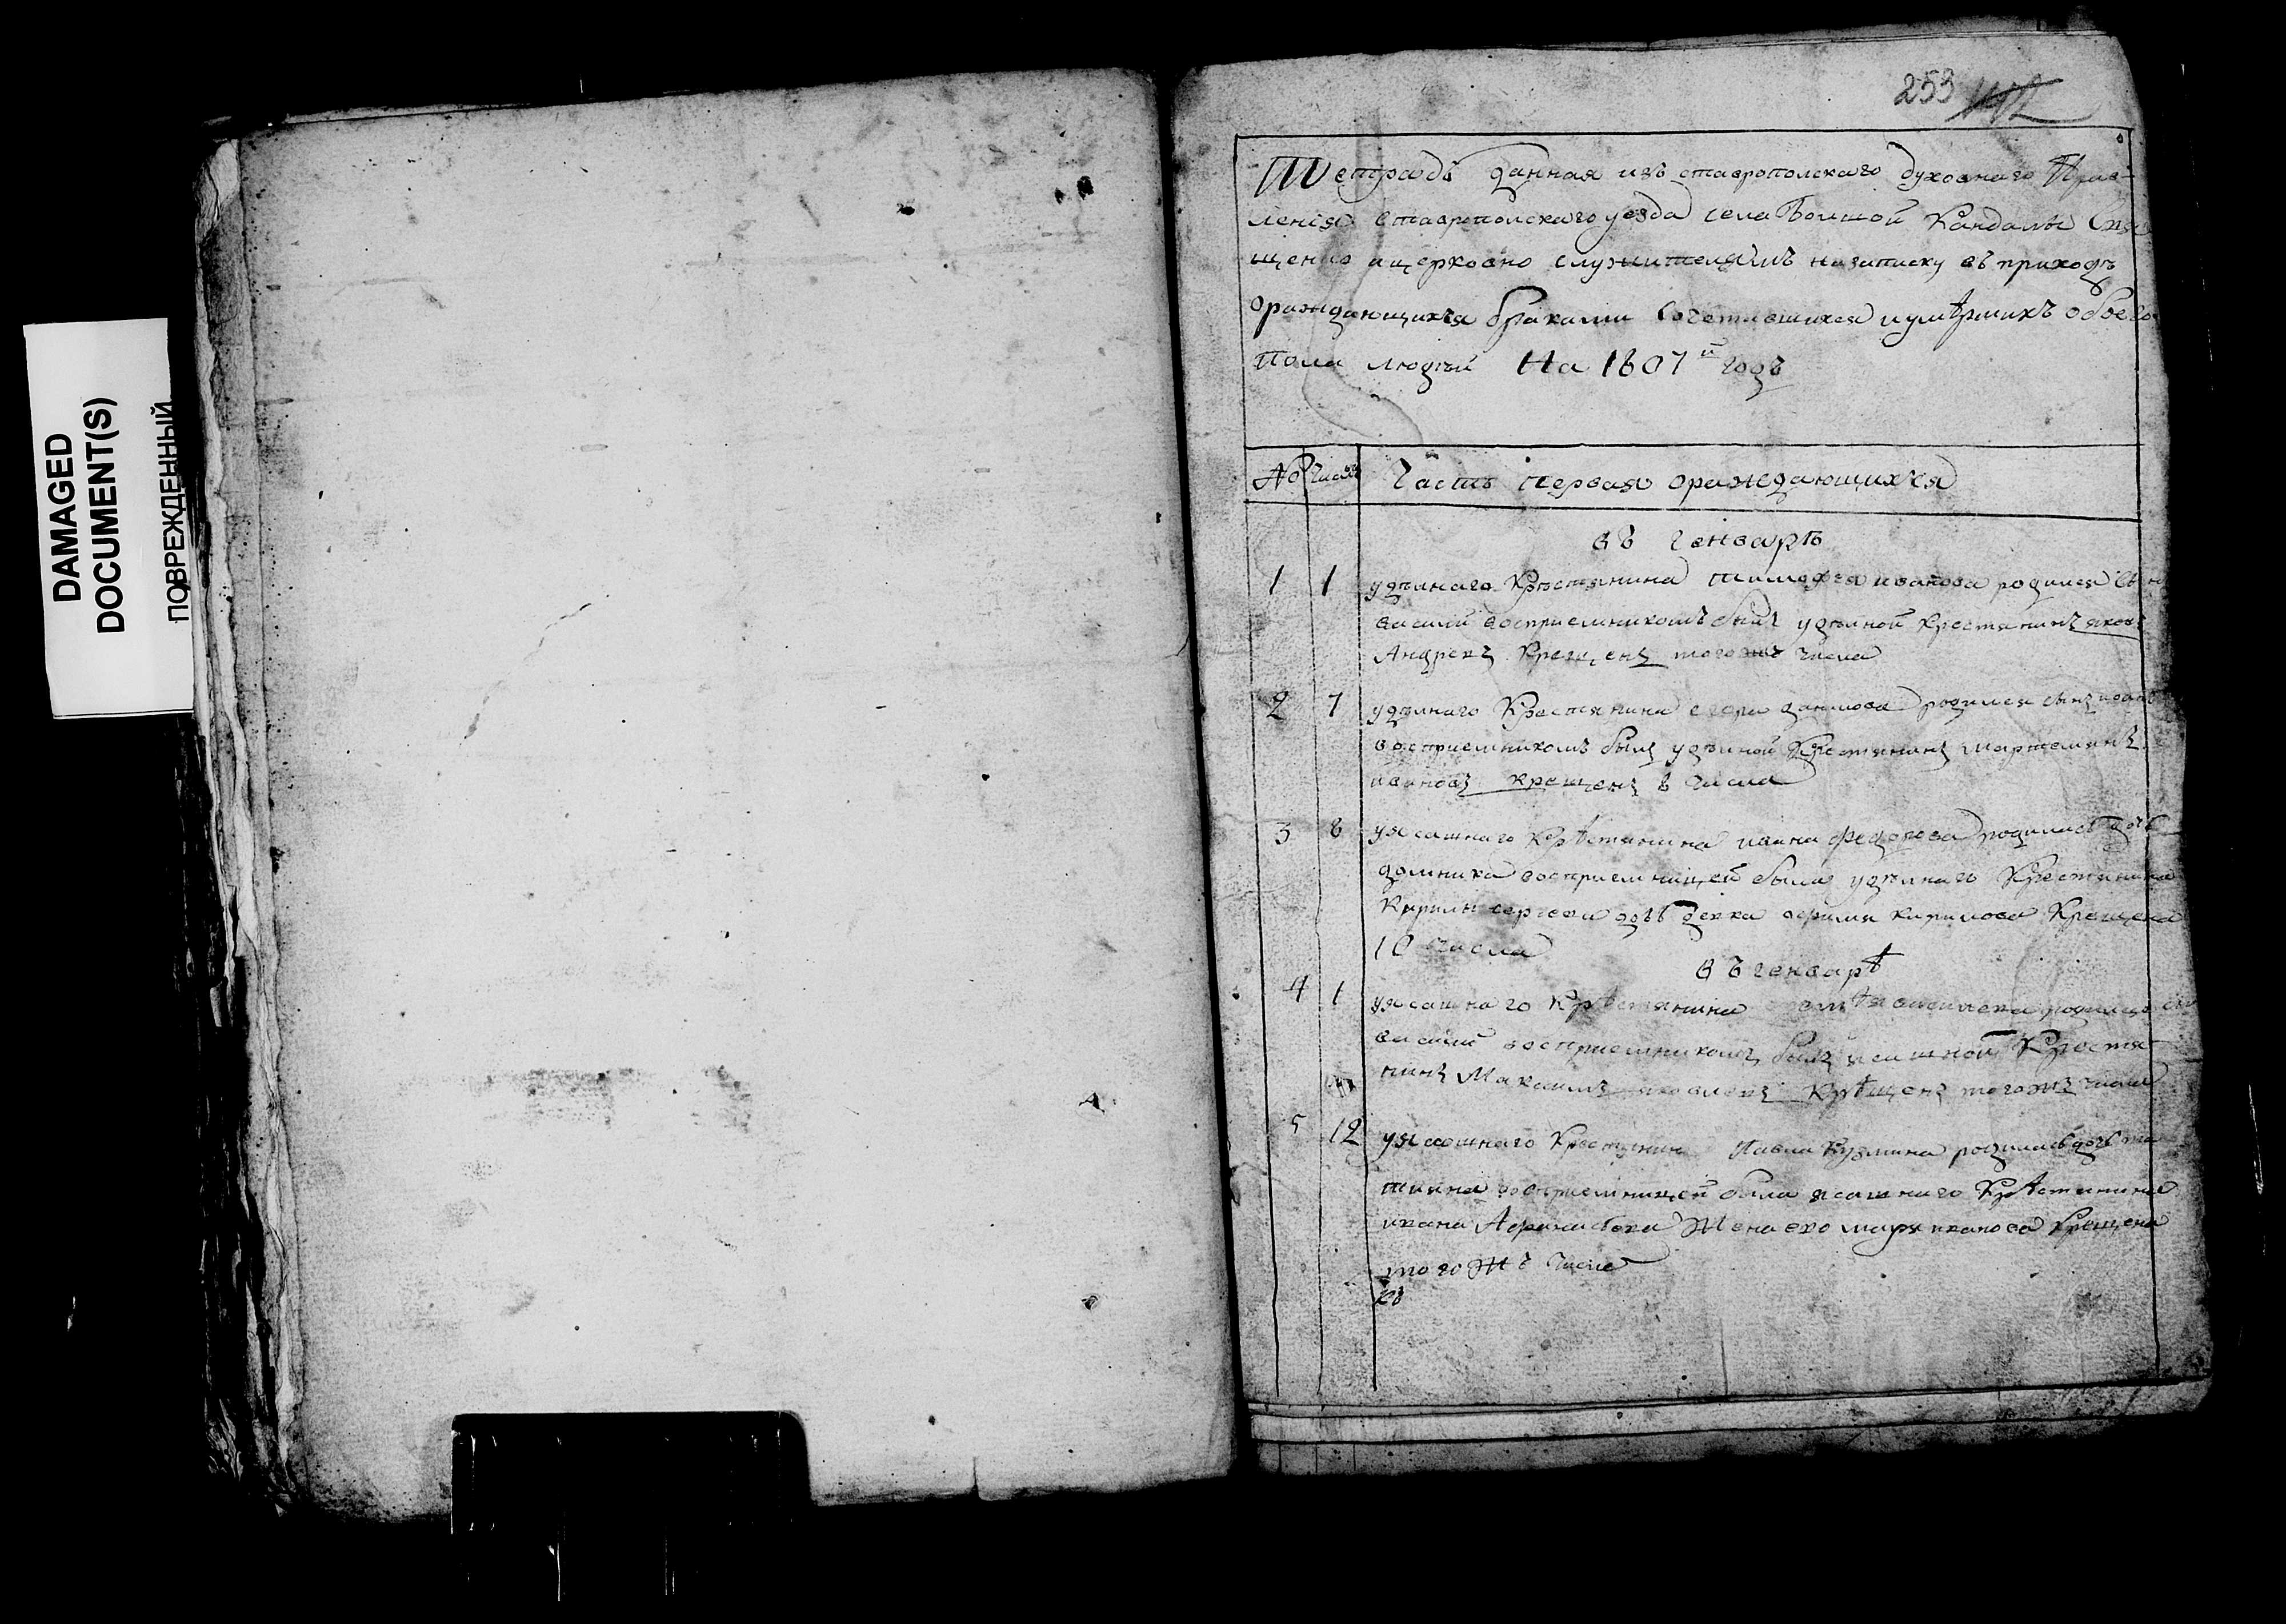 DAMAGED
DOCUMENT(S)
ПОВРЕЖДЕННЫЙ
253
Тетрадь данная изъ ставропольскаго духовнаго Прав-
ленія ставропольскаго уезда села Болшой Кандалы Свя
щенно ицерковно служителямъ назаписку въ приходѣ
ораждающихся браками Сочетавшихся иумѣршихъ обоего
Пола людѣй На 1807й годъ
№ Число Часть первая ораждающихся
въ генварѣ
1 1 удѣлнаго Крѣстьянина тимофея иванова родился Сынъ
василий восприемникомъ былъ удѣлной крестьянинъ яковъ
Андреевъ Крещенъ тогожъ числа
2 7 удѣлнаго Крестьянина егора данилова родился сынъ иванъ
восприемникомъ былъ удѣлной Крестьянинъ
ивановъ крещенъ 8 числа
3 8 уясашнаго Крѣстьянина ивана федорова родилась дочь
домника восприемницей была удѣлнаго Крестьянина
Кирилы сергеева дочь девка кирилова Крещена
10 числа
въ генварѣ
4 1 уясашнаго Крѣстьянина родился сынъ
василий восприемникомъ былъ ясашной Крестья
нинъ Максимъ яковлевъ Крѣщенъ тогожъ числа
5 12 уясашнаго Крестьянина Павла Кузмина родилась дочь та
тияна восприемницей была ясашнаго Крѣстьянина
ивана жена ево марья иванова Крещена
тогожъ числа